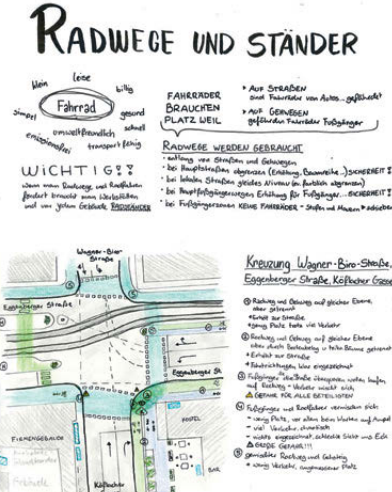 RADWEGE UND STÄNDER
klein
leise
billig
simpel
Fahrrad
gesund
schnell
umweltfreundlich
emissionsfrei
transportfähig
FAHRRÄDER
BRAUCHEN
PLATZ WEIL
AUF STRAßEN
sind Fahrräder von Autos gefährdet
AUF GEHWEGEN
gefährden Fahrräder Fußgänger
WICHTIG??
wenn man Radwege und Radfahren
fördert braucht man Werkstätten
und vor jedem Gebäude RADSTÄNDER
RADWEGE WERDEN GEBRAUCHT
entlang von Straßen und Gehwegen
bei Hauptstraßen abgrenzen (Erhöhung, Baumreihe...) SICHERHEIT
bei lokalen Straßen gleiches Niveau (in farblich abgrenzen)
bei Hauptfußgängerwegen Erhöhung für Fußgänger... SICHERHEIT
bei Fußgängerzonen KEINE FAHRRÄDER - Stufen und Mauern
Wagner-Biro
Straße
Eggenberger Straße
Eggenberger St
FIRMENGEBÄUDE
HOTEL
BAR
Köflacher
Kreuzung Wagner-Biro-Straße,
Eggenberger Straße, Köflacher Gasse
① Radweg und Gehweg auf gleicher Ebene,
aber getrennt
Erhöht zur Straße
wenig Platz viel Verkehr
② Radweg und Gehweg auf gleicher Ebene
aber durch Bäume getrennt
Erhöht zur Straße
Fahrtrichtungen klar eingezeichnet
③ Fußgänger die Straße überqueren
auf Radweg - Verkehr mischt sich
GEFAHR FÜR ALLE BETEILIGTEN
④ Fußgänger und Radfahrer vermischen sich
wenig Platz, vor allem beim Warten auf Ampel
viel Verkehr, chaotisch
nichts eingezeichnet, schlechte Sicht ums Eck
GROßE GEFAHR!!!
⑤ gemischter Radweg und Gehsteig
wenig Verkehr, angemessener Platz